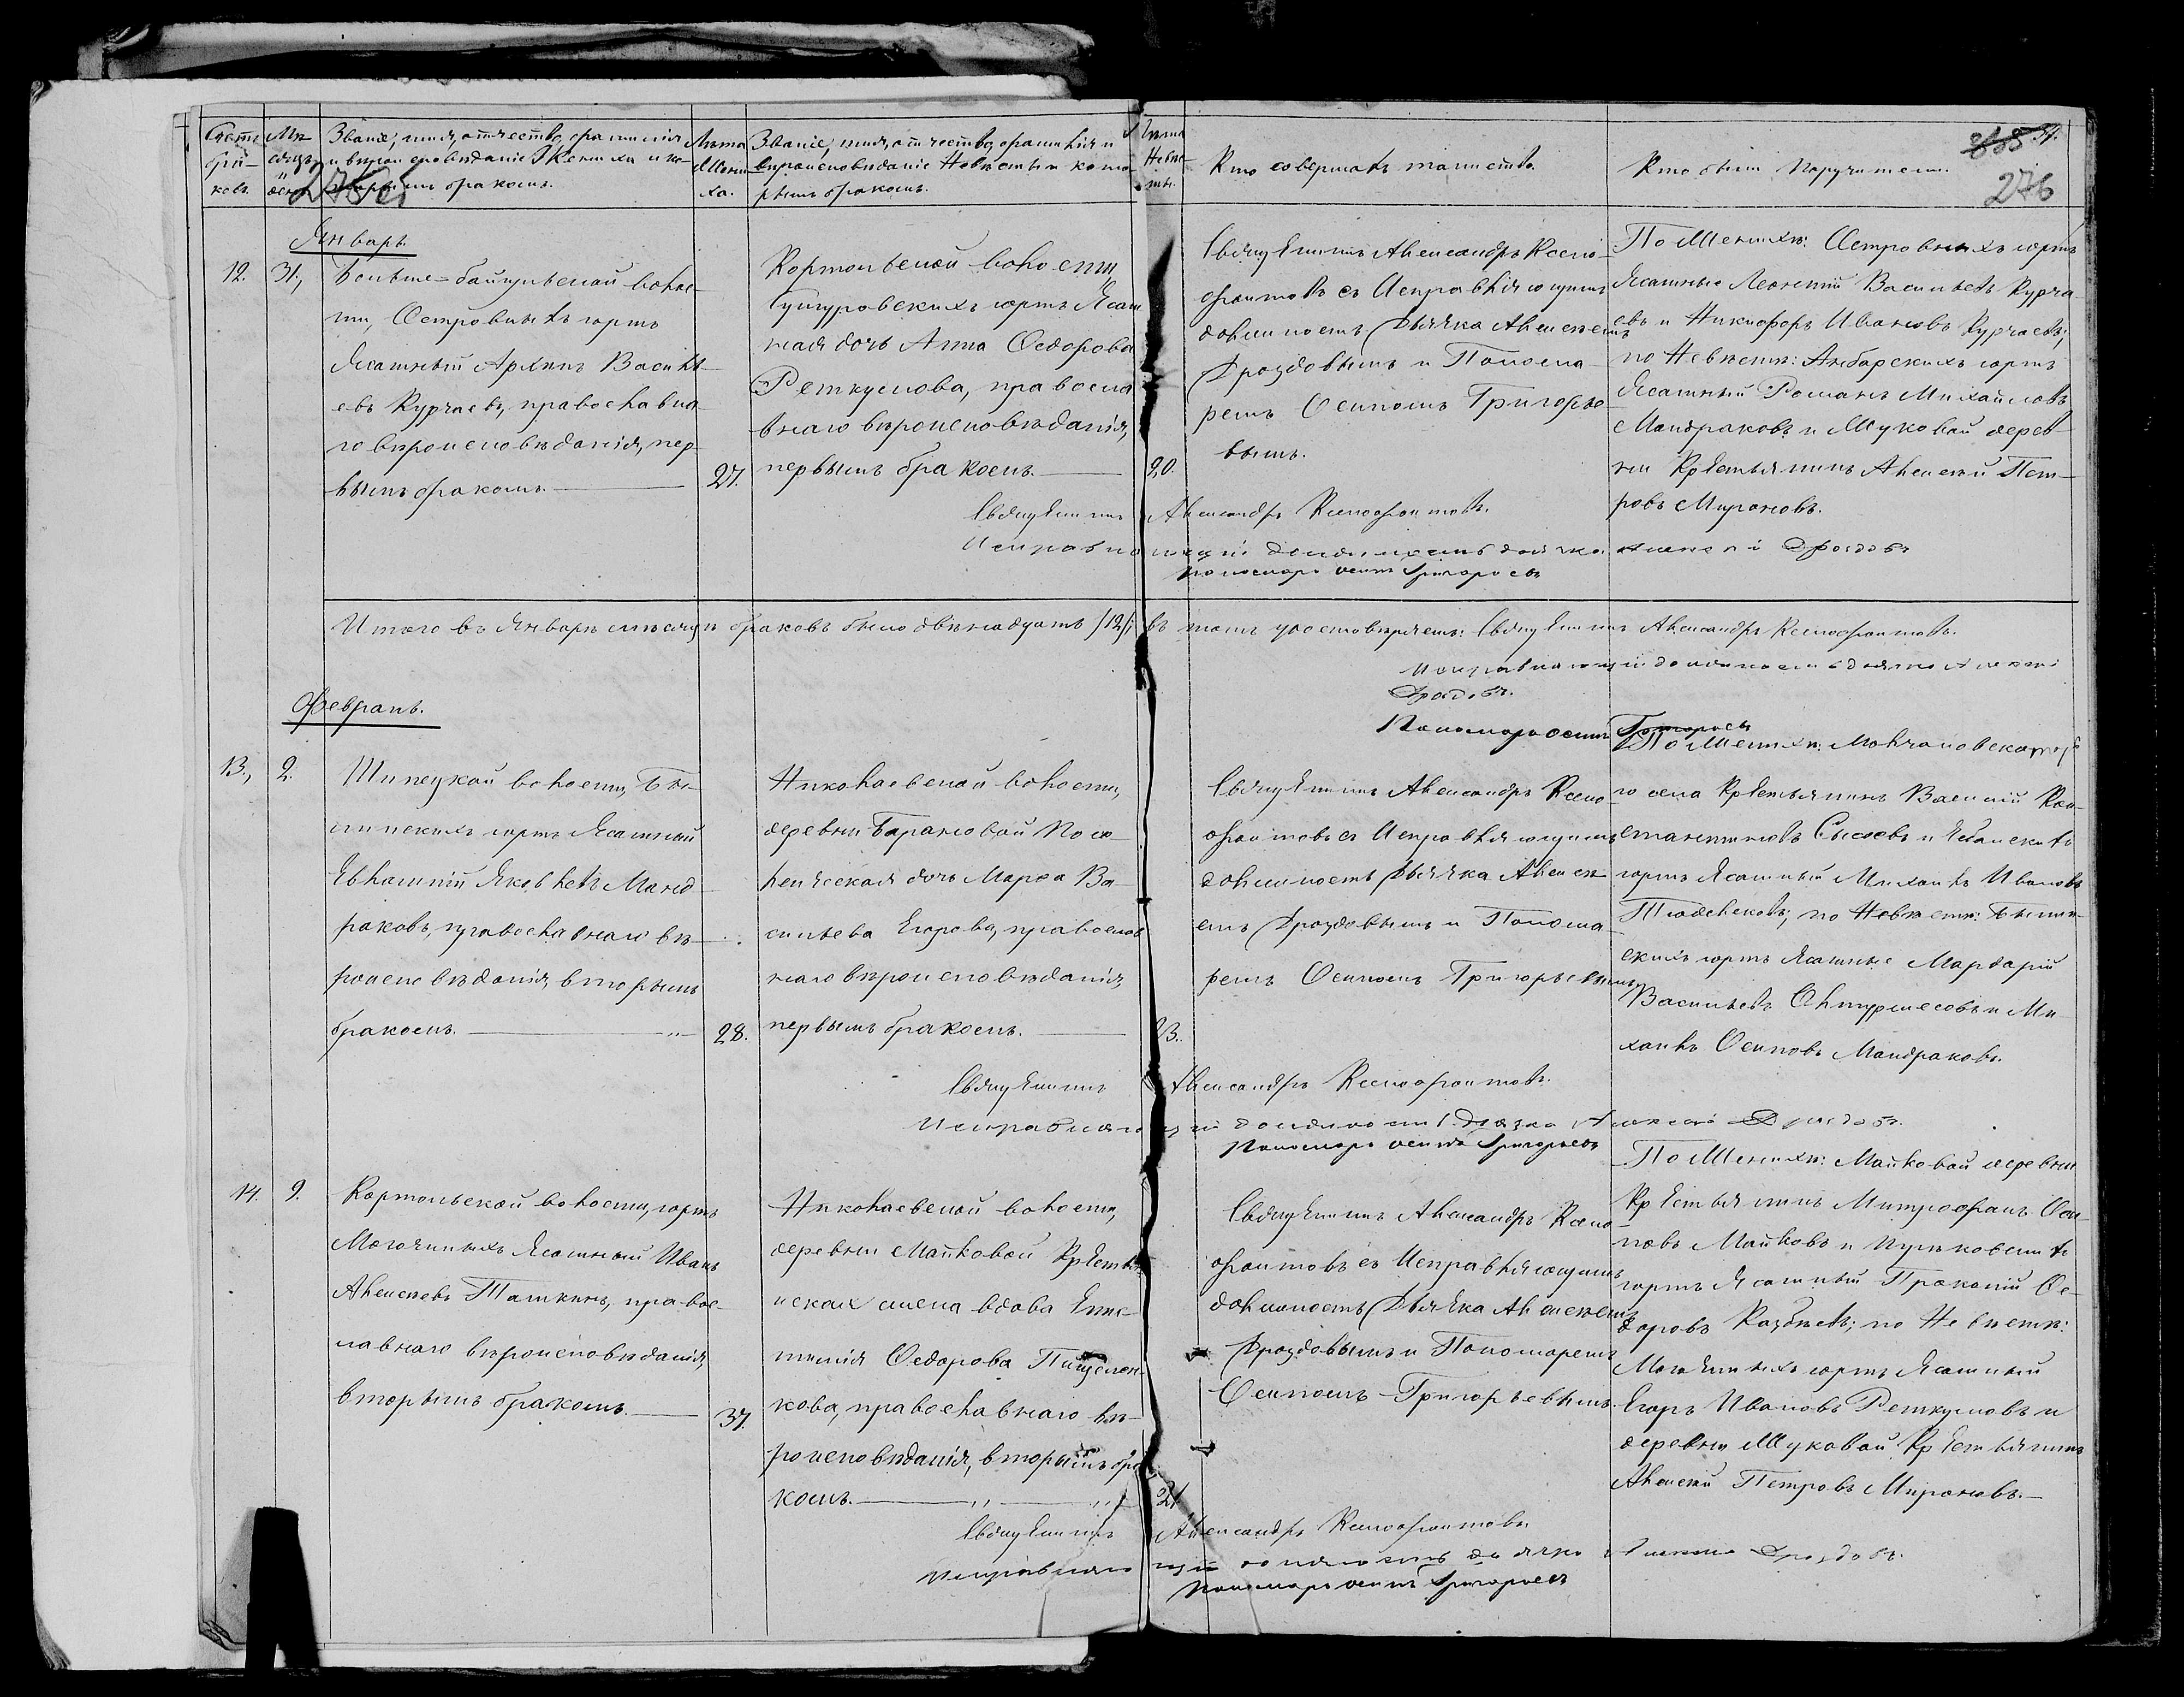 Счетъ браковъ.
Мѣсяцъ и день
Званіе, имя, отчество, фамилія
и вѣроисповѣданіе Жениха и ко-
торымъ бракомъ.
Лѣта
Жени-
ха.
Званіе, имя, отчество, фамилія и
вѣроисповѣданіе Невѣсты и кото-
рымъ бракомъ.
Лѣта
Невѣс-
ты.
Кто совершалъ таинство.
Кто были Поручители.
276
Январь.
12.
31,
волос-
ти, Островныхъ юртъ
Ясашный Архипъ Василь-
евъ Курчаевъ, православна-
го вѣроисповѣданія, пер-
вымъ бракомъ.
27.
волости,
юртъ Ясаш
ная дочь Анна Ѳедорова
Реткусова, правосла
внаго вѣроисповѣданія,
первымъ бракомъ.
20.
Священникъ Александръ Ксено-
фонтовъ съ Исправляющимъ
должность Дьячка Алексѣемъ
Дроздовымъ и Понома-
ремъ Осипомъ Григорье-
вымъ.
По Женихѣ: Островныхъ юртъ
Ясашные Леонтій Васильевъ Курча-
евъ и Никифоръ Ивановъ Курчаевъ;
по Невѣстѣ: юртъ
Ясашный Романъ Михайловъ
Мандраковъ и Жуковой дерев-
ни Крестьянинъ Алексѣй Пет-
ровъ Мироновъ.
Священникъ Александръ Ксенофонтовъ.
Исправляющій должность дьячка Алексѣй Дроздовъ
Пономарь Осипъ Григорьевъ
Итого въ Январѣ мѣсяцѣ браковъ было двѣнадцать /12/; въ томъ удостовѣряемъ: Священникъ Александръ Ксенофонтовъ.
Исправляющій должность дьячка Алексѣй
Дроздовъ.
Пономарь Осипъ Григорьевъ
Февраль.
13,
2.
волости,
юртъ Ясашный
Евлампій Яковлевъ Манд-
раковъ, православнаго вѣ-
роисповѣданія, вторымъ
бракомъ.
28.
Николаевской волости,
деревни Барановой Посе-
ленческая дочь Марѳа Ва-
сильева Егорова, православ
наго вѣроисповѣданія,
первымъ бракомъ.
23.
Священникъ Александръ Ксено-
фонтовъ съ Исправляющимъ
должность Дьячка Алексѣ-
емъ Дроздовымъ и Понома-
ремъ Осипомъ Григорьевымъ.
По Женихѣ: Молчановска-
го села Крестьянинъ Василій Кон-
стантиновъ Сысоевъ и
юртъ Ясашный Михаилъ Ивановъ
по Невѣстѣ:
скихъ юртъ Ясашные Мардарій
Васильевъ и Ми-
хаилъ Осиповъ Мандраковъ.
Священникъ Александръ Ксенофонтовъ.
Исправляющій должность Дьячка Алексѣй Дроздовъ.
Пономарь Осипъ Григорьевъ
14.
9.
волости, юртъ
Ясашный Иванъ
Алексѣевъ Ташкинъ, право-
славнаго вѣроисповѣданія,
вторымъ бракомъ.
37.
Николаевской волости,
деревни Майковой Крестьян-
вдова
Ѳедорова
кова, православнаго вѣ-
роисповѣданія, вторымъ бра
комъ.
21
Священникъ Александръ Ксено-
фонтовъ съ Исправляющимъ
должность Дьячка Алексѣемъ
Дроздовымъ и Пономаремъ
Осипомъ Григорьевымъ.
По Женихѣ: Майковой деревни
Крестьянинъ Митрофанъ Оси-
повъ Майковъ и
юртъ Ясашный Прокопій Ѳе-
доровъ по Невѣстѣ:
юртъ Ясашный
Егоръ Ивановъ Реткусовъ и
деревни Жуковой Крестьянинъ
Алексѣй Петровъ Мироновъ.
Священникъ Александръ Ксенофонтовъ
Исправляющій должность дьячка Алексѣй Дроздовъ.
Пономарь Осипъ Григорьевъ